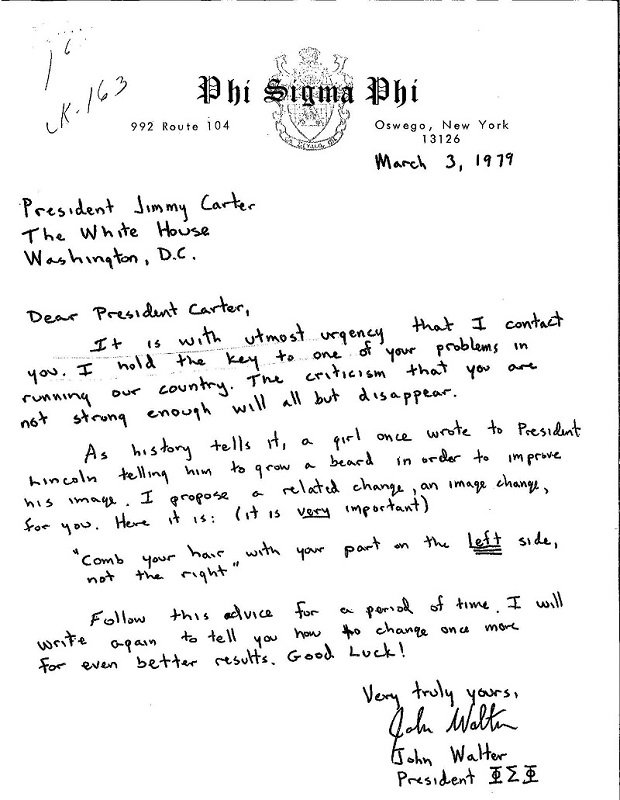 JK-163
Phi Sigma Phi
992 Route 104
Oswego, New York
13126
March 3, 1979
President Jimmy Carter
The White House
Washington, D.C.
Dear President Carter,
It is with utmost urgency that I contact
you. I hold the key to one of your problems in
running our country. The criticism that you are
not strong enough will all but disappear.
As history tells it, a girl once wrote to President
Lincoln telling him to grow a beard in order to improve
his image. I propose a related change, an image change,
for you. Here it is: (it is very important)
"Comb your hair with your part on the left side,
not the right"
Follow this advice for a period of time. I will
write again to tell you how to change once more
for even better results. Good Luck!
Very truly yours,
John Walter
John Walter
President ΦΣΦ